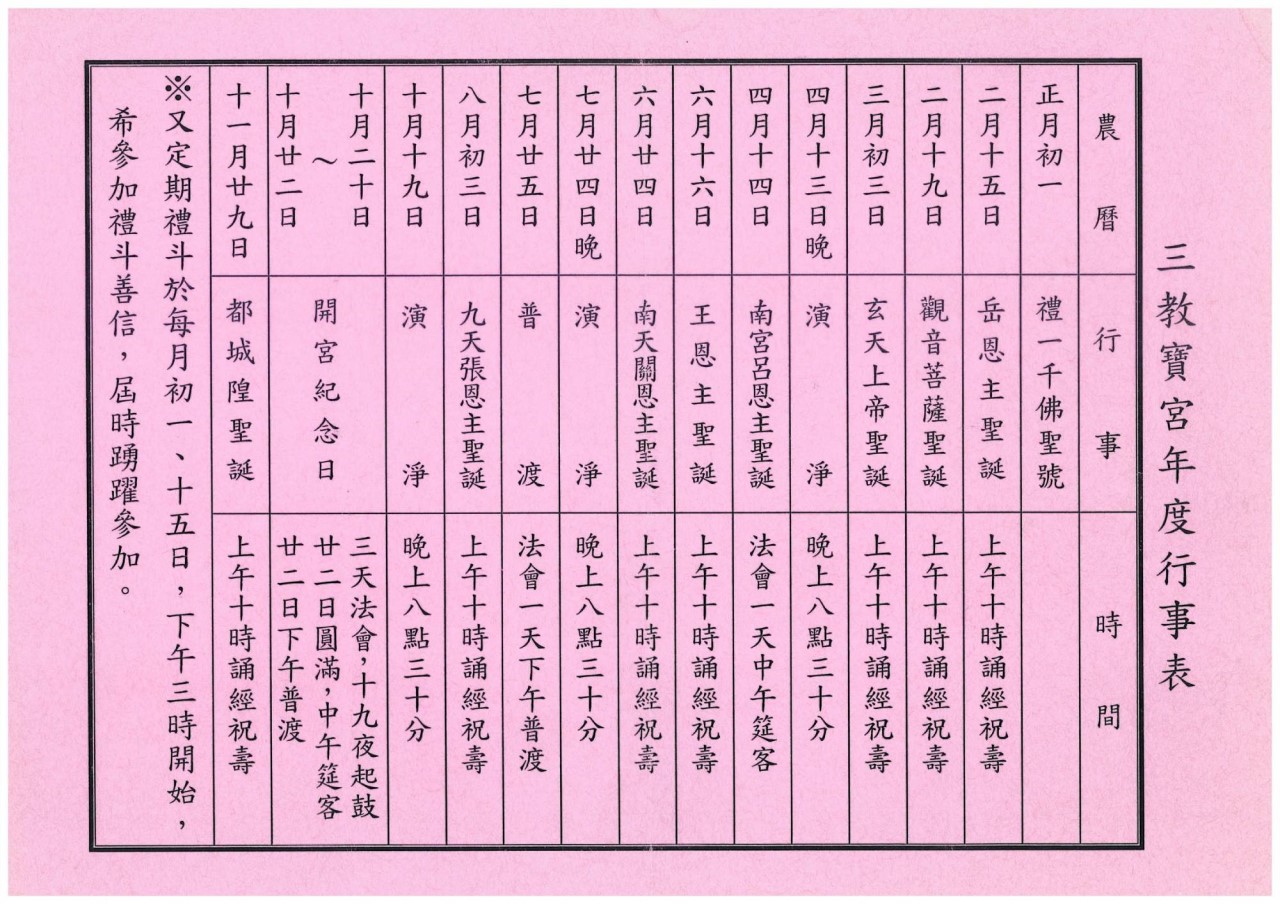 三教寶宮年度行事表
農曆 行事 時間
正月初一 禮一千佛聖號
二月十五日 岳恩主聖誕 上午十時誦經祝壽
二月十九日 觀音菩薩聖誕 上午十時誦經祝壽
三月初三日 玄天上帝聖誕 上午十時誦經祝壽
四月十三日晚 演淨 晚上八點三十分
四月十四日 南宮呂恩主聖誕 法會一天中午筵客
六月十六日 王恩主聖誕 上午十時誦經祝壽
六月廿四日 南天關恩主聖誕 上午十時誦經祝壽
七月廿四日晚 演淨 晚上八點三十分
七月廿五日 普渡 法會一天下午普渡
八月初三日 九天張恩主聖誕 上午十時誦經祝壽
十月十九日 演淨 晚上八點三十分
十月二十日
~
十月廿二日
開宮紀念日
三天法會，十九夜起鼓
廿二日圓滿，中午筵客
廿二日下午普渡
十一月廿九日 都城隍聖誕 上午十時誦經祝壽
※又定期禮斗於每月初一、十五日，下午三時開始，
希參加禮斗善信，屆時踴躍參加。